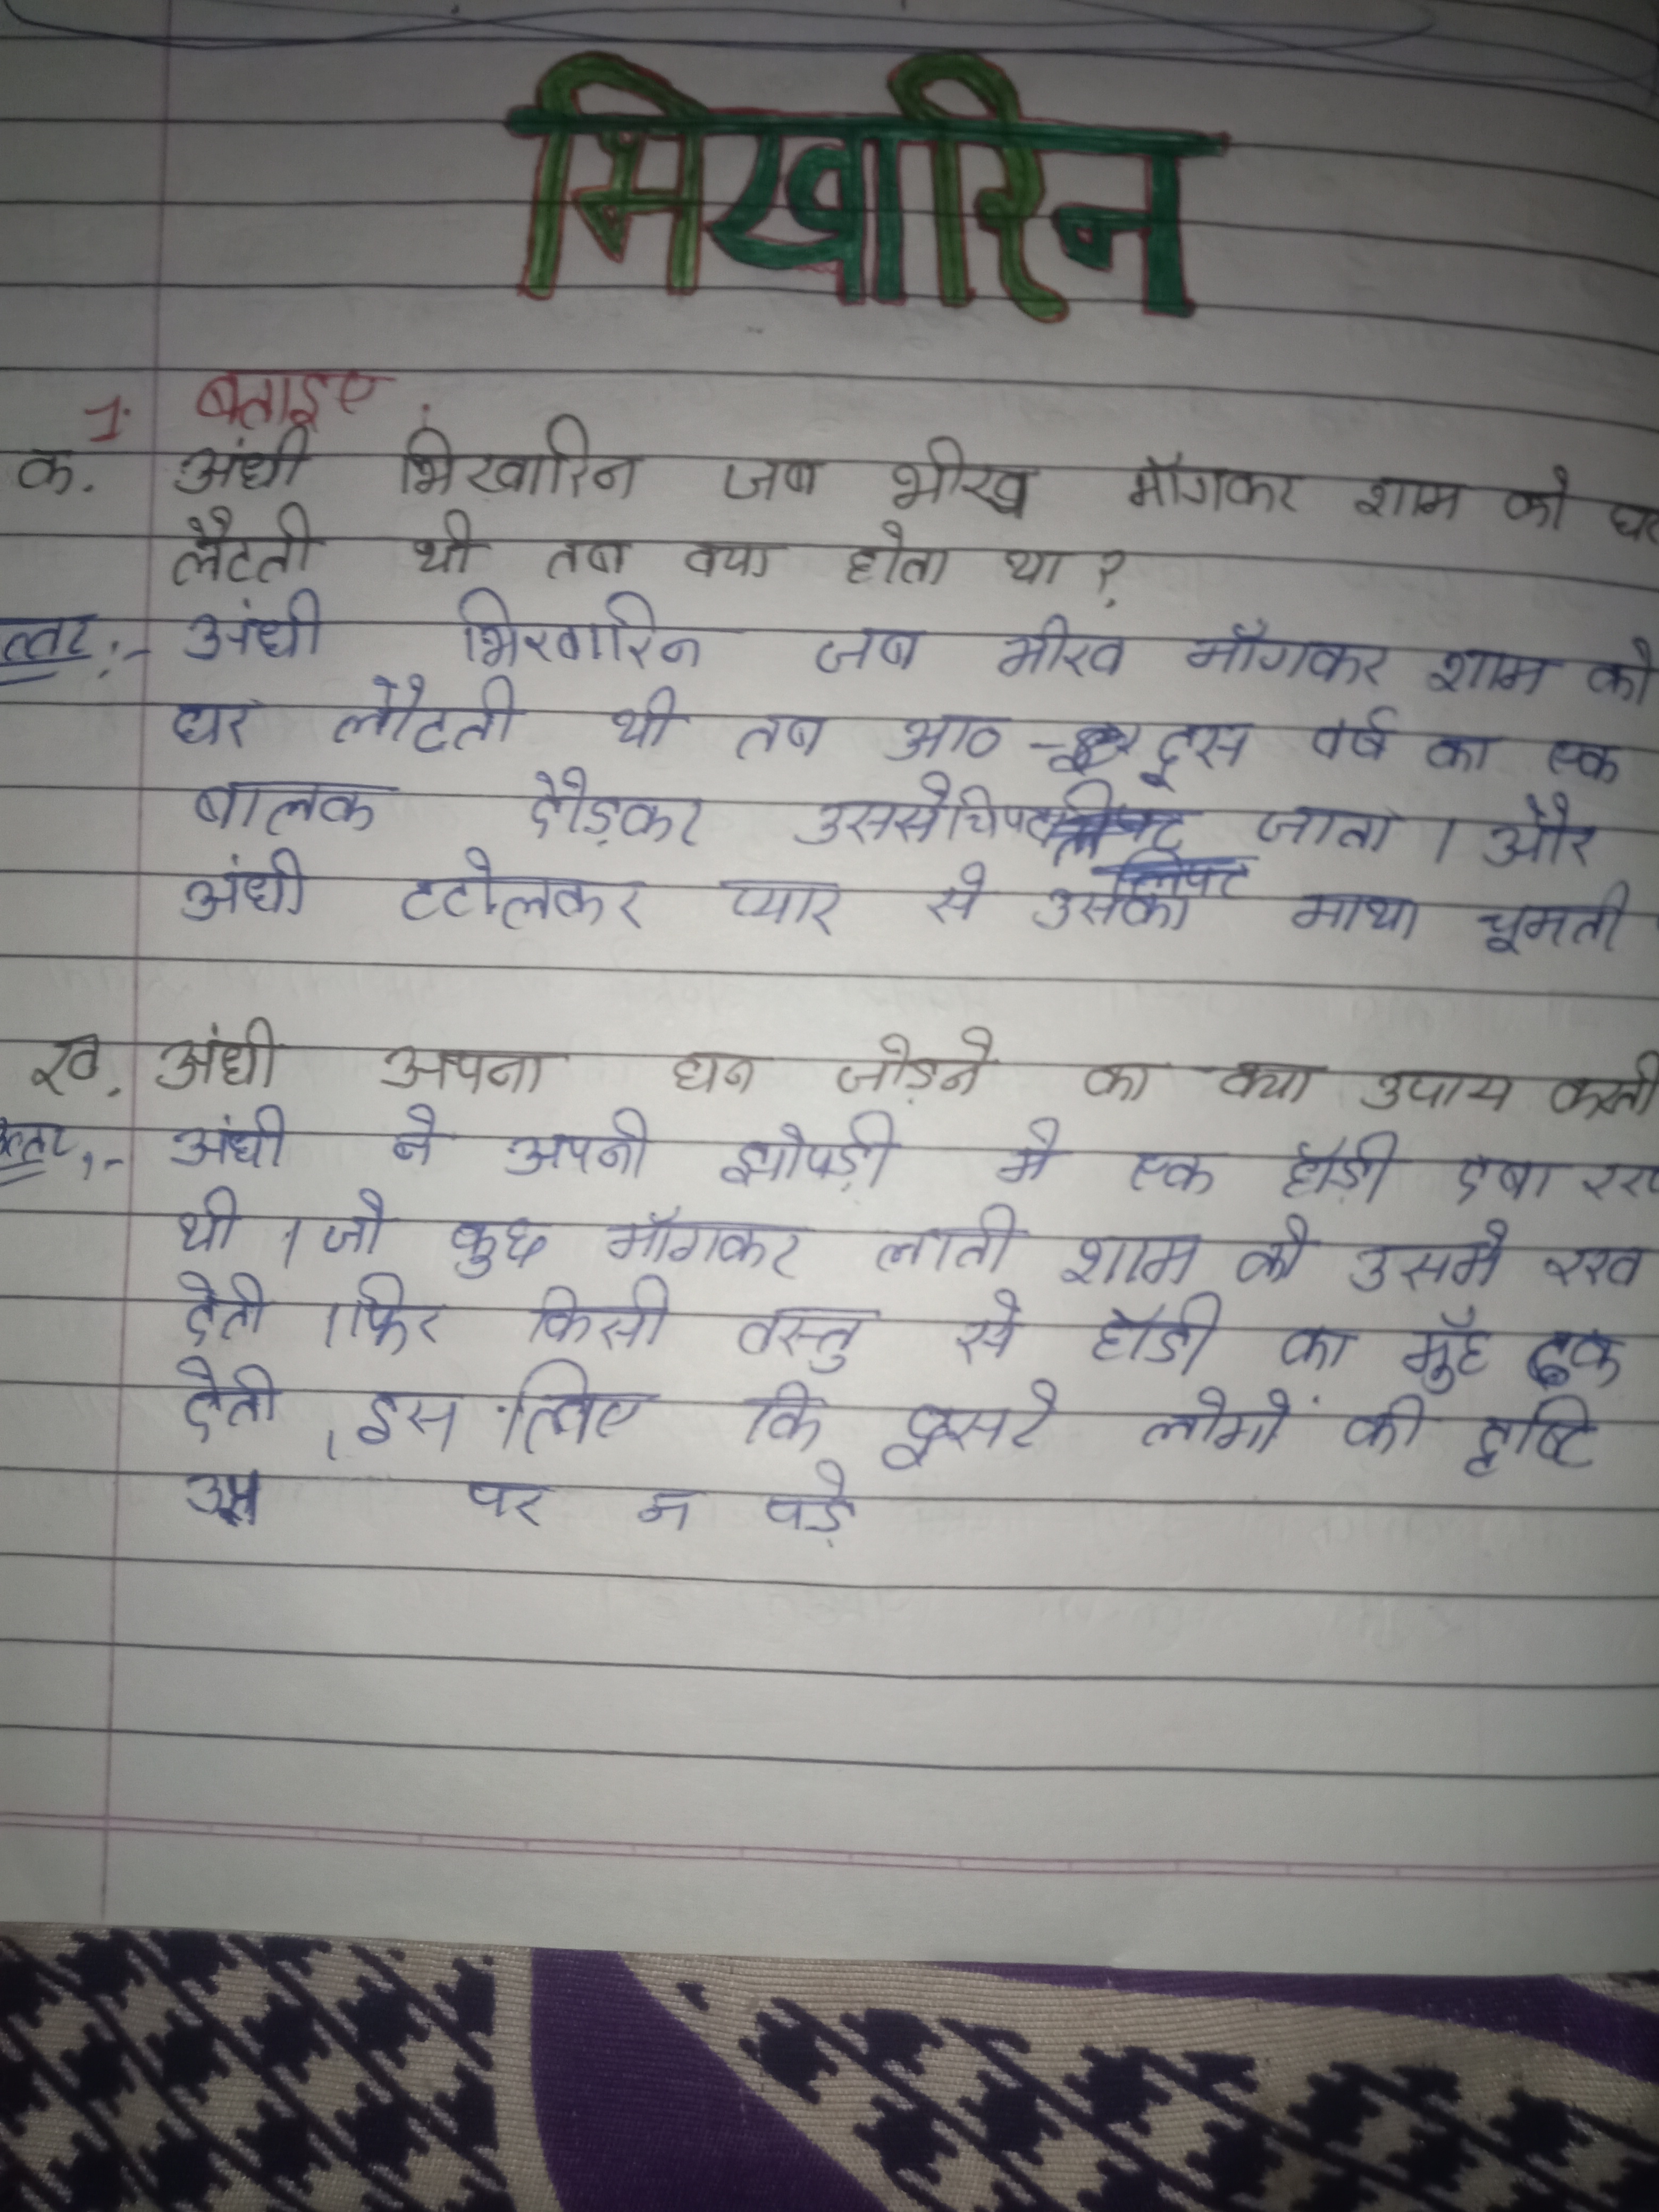 भिखारिन
1. बताइए
क. अंधी भिखारिन जब भीख माँगकर शाम को घर
लौटती थी तब क्या होता था ?
उत्तर :- अंधी भिखारिन जब भीख माँगकर शाम को
घर लौटती थी तब आठ - दूस वर्ष का एक
बालक दौड़कर उससे चिपट जाता । और
लिपट
अंधी टटोलकर प्यार से उसका माथा चूमती
ख. अंधी अपना धन जोड़ने का क्या उपाय करती
उत्तर :- अंधी ने अपनी झोपड़ी मे एक हाँड़ी दबा
थी । जो कुछ माँगकर लाती शाम को उसमे रख
देती । फिर किसी वस्तु से हाँडी का मुँह ढक
देती , इस लिए कि दूसरे लोगों की दृष्टि
उस पर न पड़े